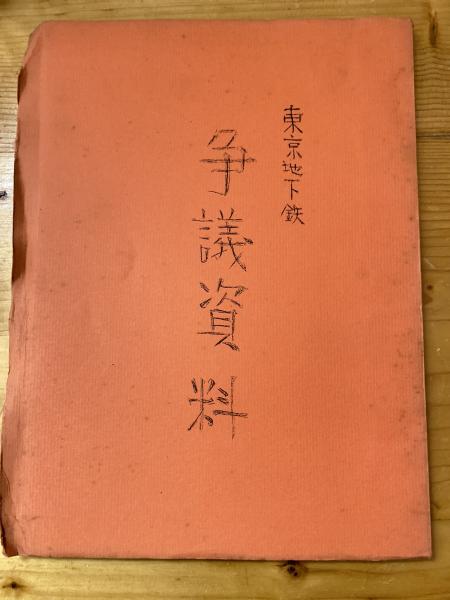 東京地下鉄
争議資料